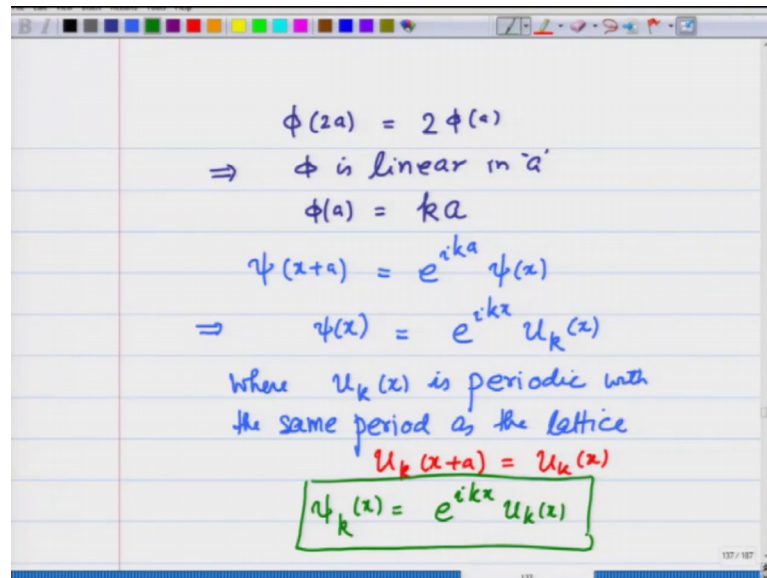 ϕ(2a) = 2 ϕ(a)
⇒ ϕ is linear in 'a'
ϕ(a) = ka
ψ(x+a) = e^{ika} ψ(x)
⇒ ψ(x) = e^{ikx} u_k(x)
where u_k(x) is periodic with
the same period as the lattice
u_k(x+a) = u_k(x)
ψ_k(x) = e^{ikx} u_k(x)
137 / 187